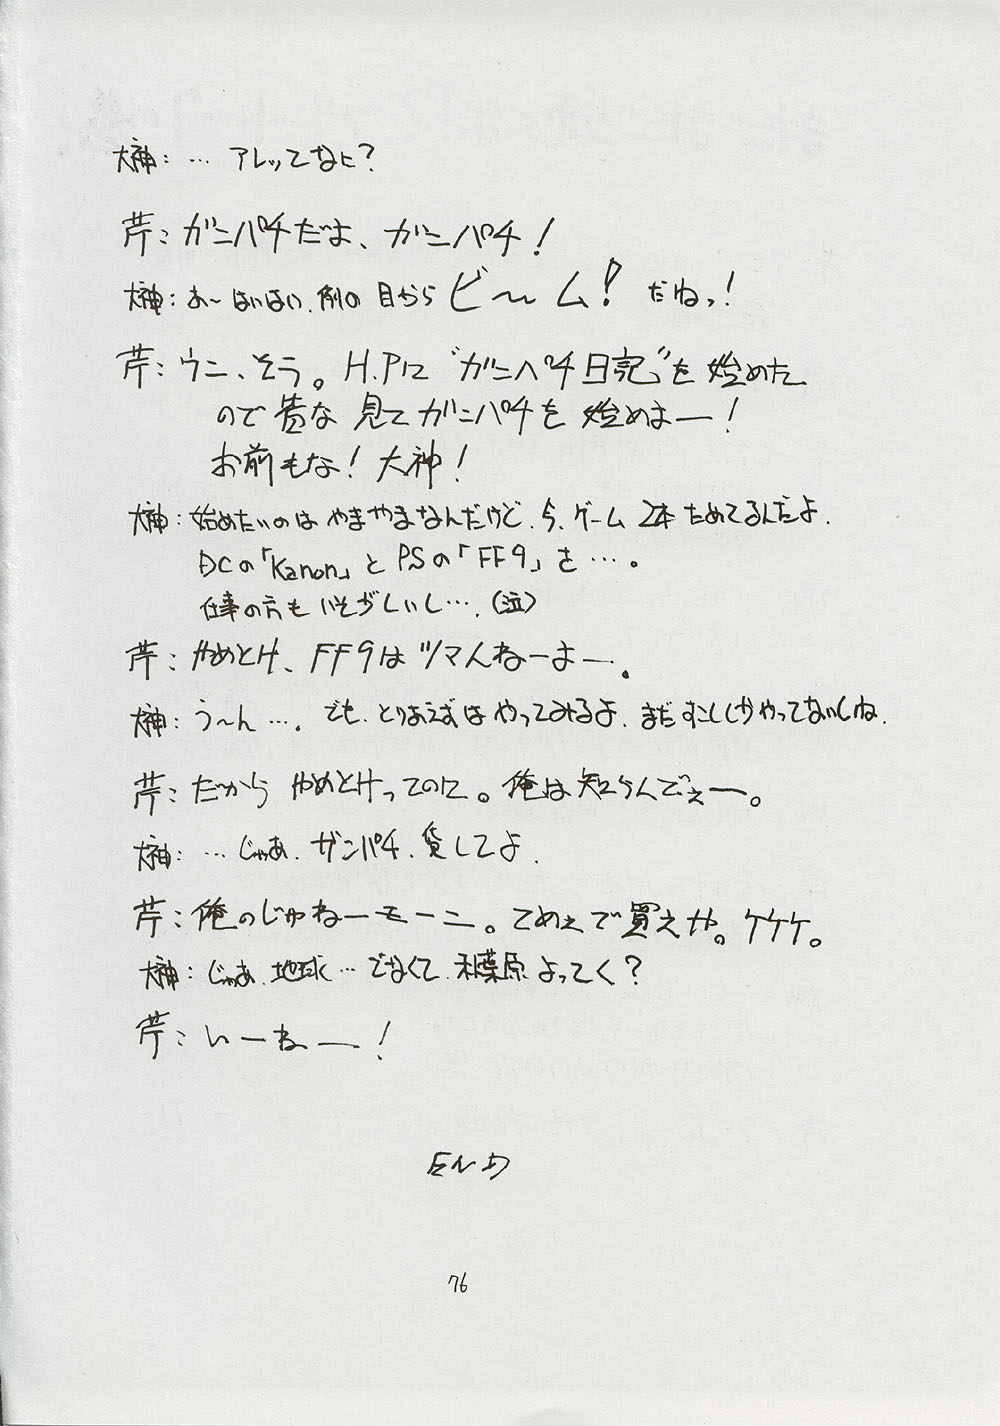 大神：… アレッてなに？
芹：ガンパチだよ、ガンパチ！
大神：あ〜はいはい、例の 目から ビ〜ム！ だねっ！
芹：ウン、そう。H.Pに “ガンパチ日記”を 始めた
ので 皆な 見て ガンパチを 始めよー！
お前もな！ 大神！
大神：始めたいのは やまやまなんだけど、今、ゲーム 2本 ためてるんだよ、
DCの「Kanon」と PSの「FF9」を…。
仕事の方も いそがしいし…、（泣）
芹：やめとけ、FF9は ツマんねーよー。
大神：う〜ん…。でも、とりあえずは やってみるよ、まだ すこししかやってないしね、
芹：だから やめとけってのに。俺は 知らんでぇー。
大神：… じゃあ、ガンパチ、貸してよ、
芹：俺のじゃねーモーン。てめぇで買えや。ケケケ。
大神：じゃあ、地球… でなくて、秋葉原 よってく？
芹：いーねー！
END
76